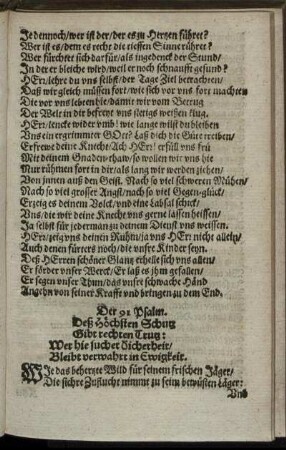 Je dennoch/wer ist der/der es zu Hertzen führet?
Wer ist es/dem es recht die tieffen Sinne rühret?
Wer fürchtet sich darfür/als ingedenck der Stund/
In der er bleiche wird/weil er noch schnaufft gesund?
HErr/lehre du vns selbst/der Tage Ziel betrachten/
Daß wir gleich müssen fort/wie sich vor vns fort machten
Die vor vns lebten hie/damit wir vom Betrug
Der Welt in dir befreyt vns stetigs weißten klug.
HErr/lencke wider vmb! wie lange wilst du bleiben
Uns ein ergrimmter GOtt? Laß dich die Güte treiben/
Erfrewe deine Knecht/Ach HErr! erfüll vns frü
Mit deinem Gnaden-thaw/so wollen wir vns hie
Nur rühmen fort in dir/als lang wir werden ziehen/
Von innen auß den Geist. Nach so viel schweren Mühen/
Nach so viel grosser Angst/nach so viel Gegen-glück/
Erzeig es deinem Volck/vnd eine Labsal schick/
Uns/die wir deine Knecht vns gerne lassen heissen/
Ja selbst für jederman zu deinem Dienst vns weissen.
HErr/zeig vns deinen Ruhm/ja vns HErr nicht allein/
Auch denen fürters noch/die vnsre Kinder seyn.
Deß HErren schöner Glantz erhelle sich vns allen/
Er förder vnser Werck/Er laß es jhm gefallen/
Er segen vnser Thun/das vnsre schwache Händ
Angehn von seiner Krafft vnd bringen zu dem End.
Der 91 Psalm.
Deß Höchsten Schutz
Gibt rechten Trutz:
Wer hie suchet Sicherheit/
Bleibt verwahrt in Ewigkeit.
WIe das behertzte Wild für seinem frischen Jäger/
Die sichre Zuflucht nimmt zu seim bewüsten Läger:
Und